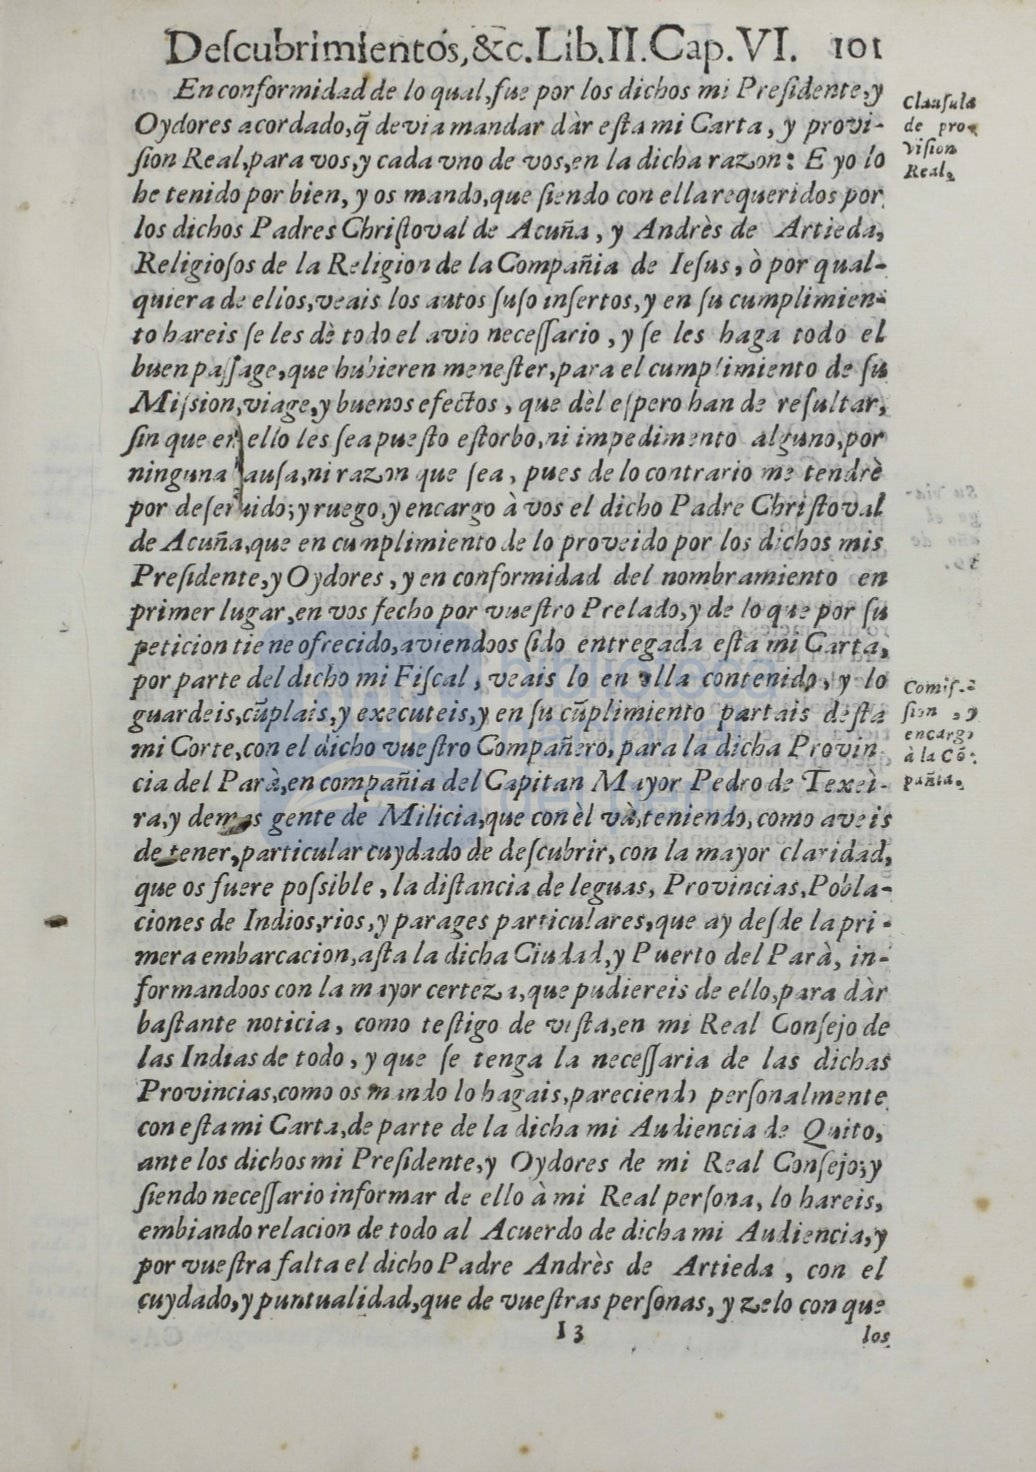 Deſcubrimientos, &c. Lib. II. Cap. VI. 101
En conformidad de lo qual, fue por los dichos mi Preſidente, y
Oydores acordado, q̃ devia mandar dàr eſta mi Carta, y provi-
ſion Real, para vos, y cada vno de vos, en la dicha razon: E yo lo
he tenido por bien, y os mando, que ſiendo con ella requeridos por
los dichos Padres Chriſtoval de Acuña, y Andrès de Artieda,
Religioſos de la Religion de la Compañia de Ieſus, ò por qual-
quiera de ellos, veais los autos ſuſo inſertos, y en ſu cumplimien-
to hareis ſe les dè todo el avio neceſſario, y ſe les haga todo el
buen paſſage, que hubieren meneſter, para el cumplimiento de ſu
Miſsion, viage, y buenos efectos, que dèl eſpero han de reſultar,
ſin que en ello les ſea pueſto eſtorbo, ni impedimento alguno, por
ninguna auſa, ni razon que ſea, pues de lo contrario me tendrè
por deſeruido; y ruego, y encargo à vos el dicho Padre Chriſtoval
de Acuña, que en cumplimiento de lo proveido por los dichos mis
Preſidente, y Oydores, y en conformidad del nombramiento en
primer lugar, en vos fecho por vueſtro Prelado, y de lo que por ſu
peticion tiene ofrecido, aviendoos ſido entregada eſta mi Carta,
por parte del dicho mi Fiſcal, veais lo en ella contenido, y lo
guardeis, cũplais, y executeis, y en ſu cũplimiento partais deſta
mi Corte, con el dicho vueſtro Compañero, para la dicha Provin-
cia del Parà, en compañia del Capitan Mayor Pedro de Texeì-
ra, y demas gente de Milicia, que con èl và, teniendo, como aveis
de tener, particular cuydado de deſcubrir, con la mayor claridad,
que os fuere poſsible, la diſtancia de leguas, Provincias, Pobla-
ciones de Indios, rios, y parages particulares, que ay deſde la pri-
mera embarcacion, aſta la dicha Ciudad, y Puerto del Parà, in-
formandoos con la mayor certeza, que pudiereis de ello, para dàr
baſtante noticia, como teſtigo de viſta, en mi Real Conſejo de
las Indias de todo, y que ſe tenga la neceſſaria de las dichas
Provincias, como os mando lo hagais, pareciendo perſonalmente
con eſta mi Carta, de parte de la dicha mi Audiencia de Quito,
ante los dichos mi Preſidente, y Oydores de mi Real Conſejo; y
ſiendo neceſſario informar de ello à mi Real perſona, lo hareis,
embiando relacion de todo al Acuerdo de dicha mi Audiencia, y
por vueſtra falta el dicho Padre Andrès de Artieda, con el
cuydado, y puntualidad, que de vueſtras perſonas, y zelo con que
I 3 los
Clauſula
de pro-
viſion
Real.
Comiſ-
ſion, y
encargo
à la Cõ-
pañia.
biblioteca
nacional